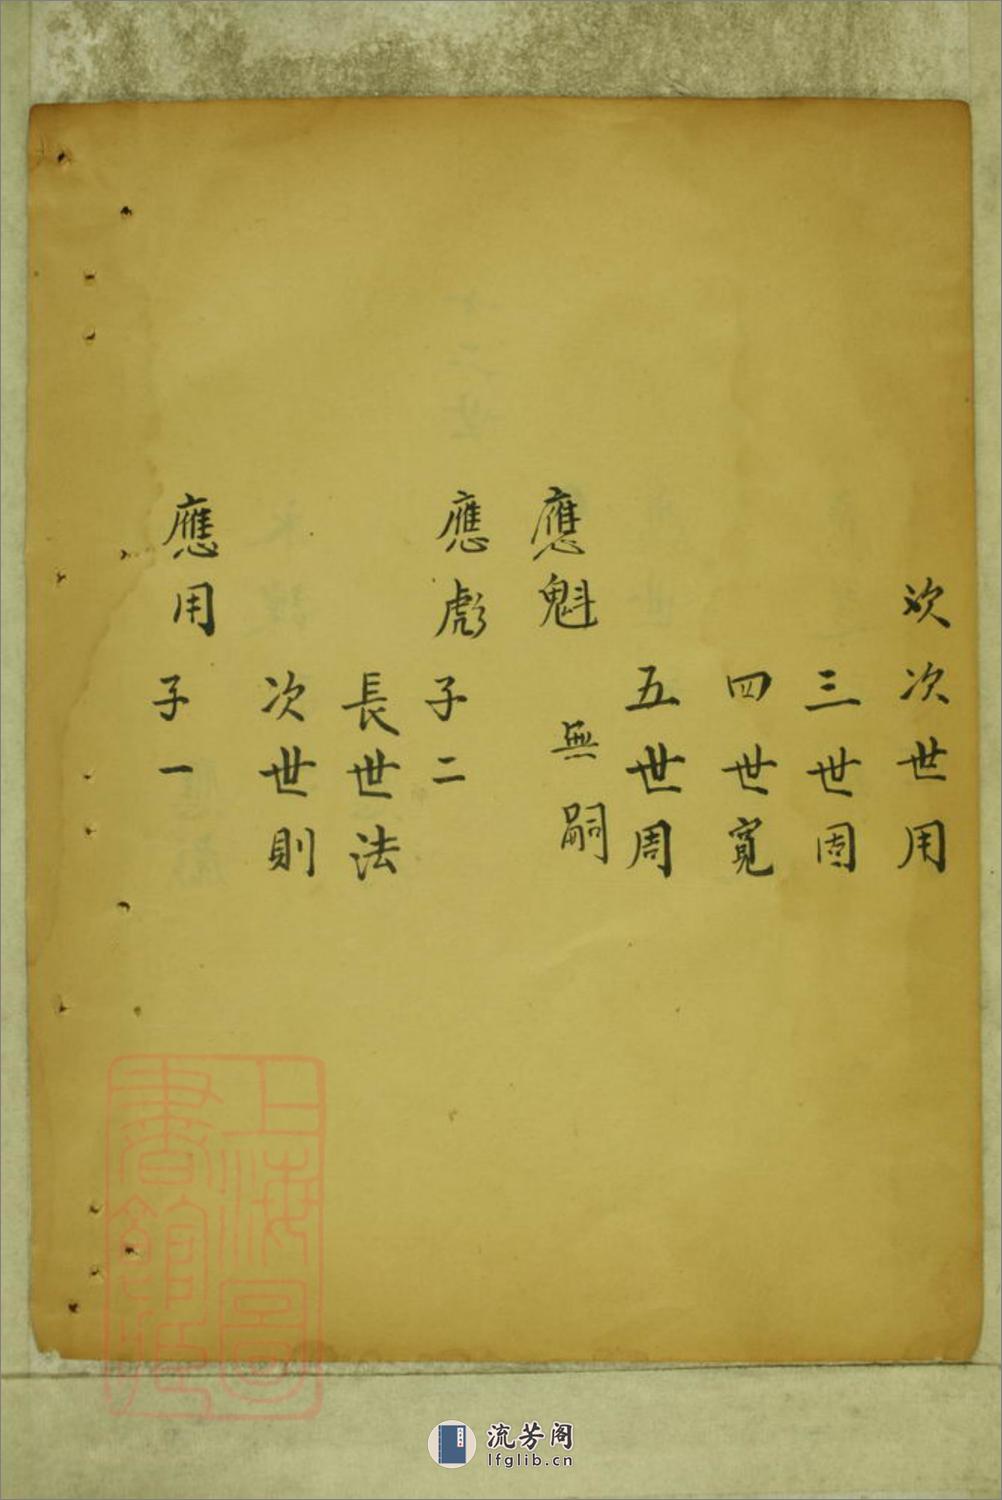 次次世用
三世固
四世寬
五世周
應魁 無嗣
應彪子二
長世法
次世則
應用子一
上海圖書館藏
流芳阁
lfglib.cn